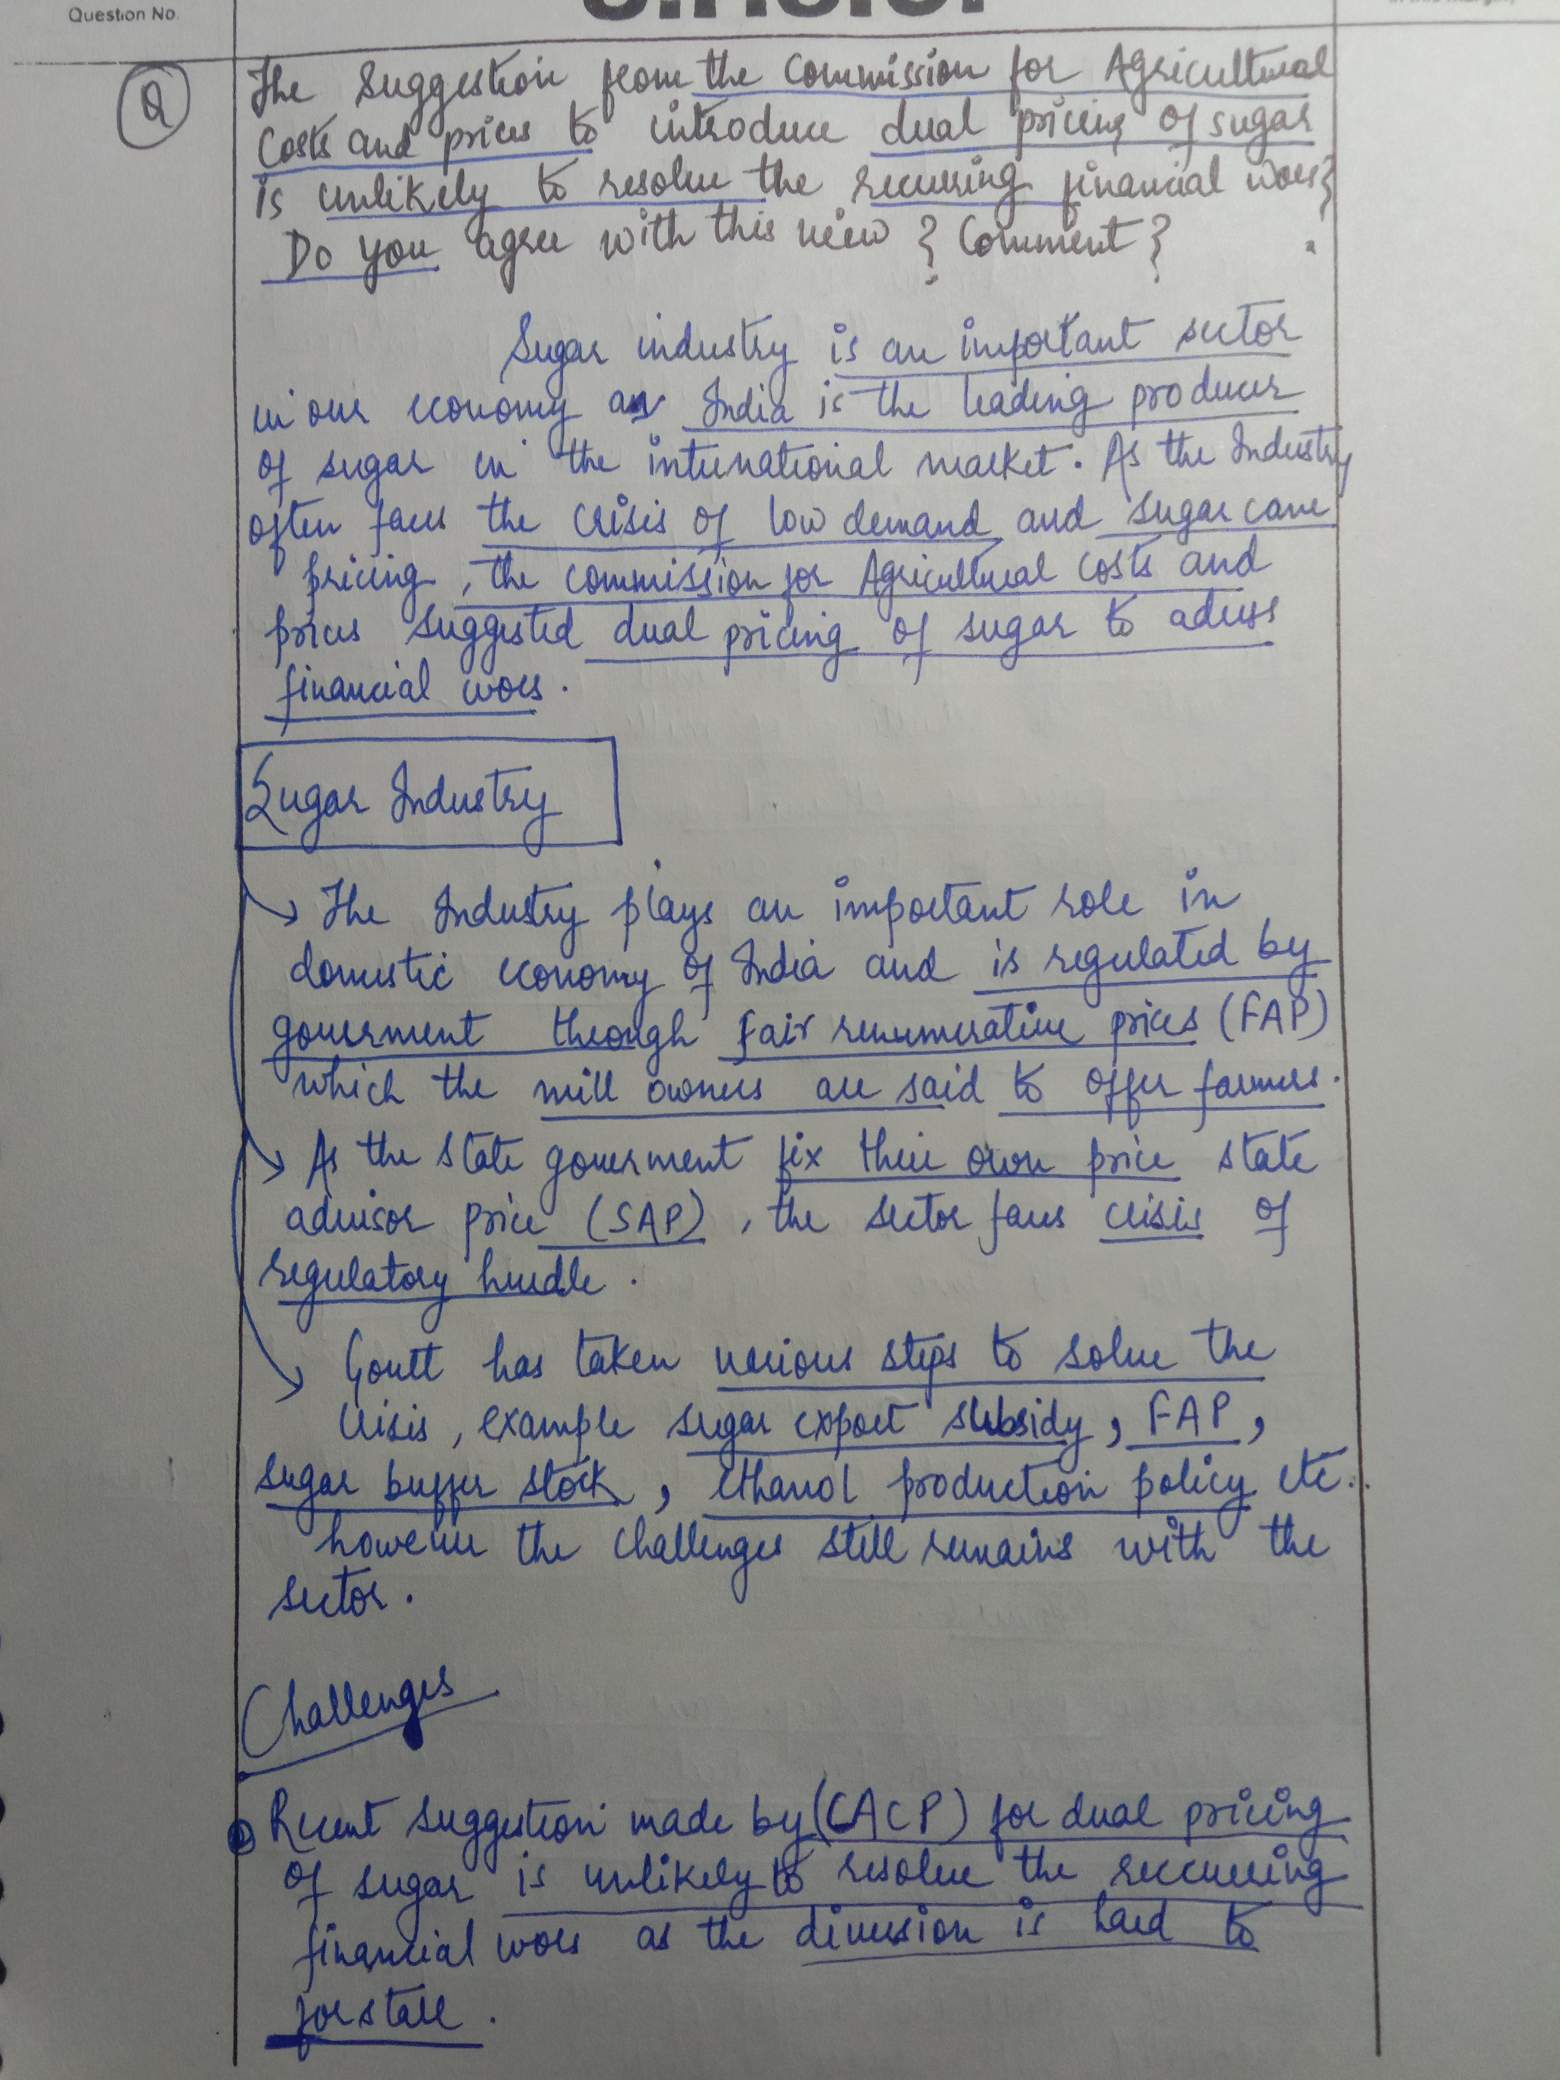 Question No.
Q
The Suggestion from the Commission for Agricultural
Costs and prices to introduce dual pricing of sugar
is unlikely to resolve the recurring financial woes?
Do you agree with this view? Comment?
Sugar industry is an important sector
in our economy as India is the leading producer
of sugar in the international market. As the Industry
often faces the crisis of low demand and sugar cane
pricing, the commission for Agricultural costs and
prices suggested dual pricing of sugar to adress
financial woes.
Sugar Industry
→ The Industry plays an important role in
domestic economy of India and is regulated by
government through fair renumerative prices (FAP)
which the mill owners are said to offer farmers.
→ As the state goverment fix their own price state
advisor price (SAP), the sector faces crisis of
regulatory hurdle.
→ Govtt has taken various steps to solve the
crisis, example sugar export subsidy, FAP,
sugar buffer stock, ethanol production policy etc.
however the challenges still remains with the
sector.
Challenges
Recent suggestion made by (CACP) for dual pricing
of sugar is unlikely to resolve the reccurring
financial woes as the diversion is hard to
forstall.